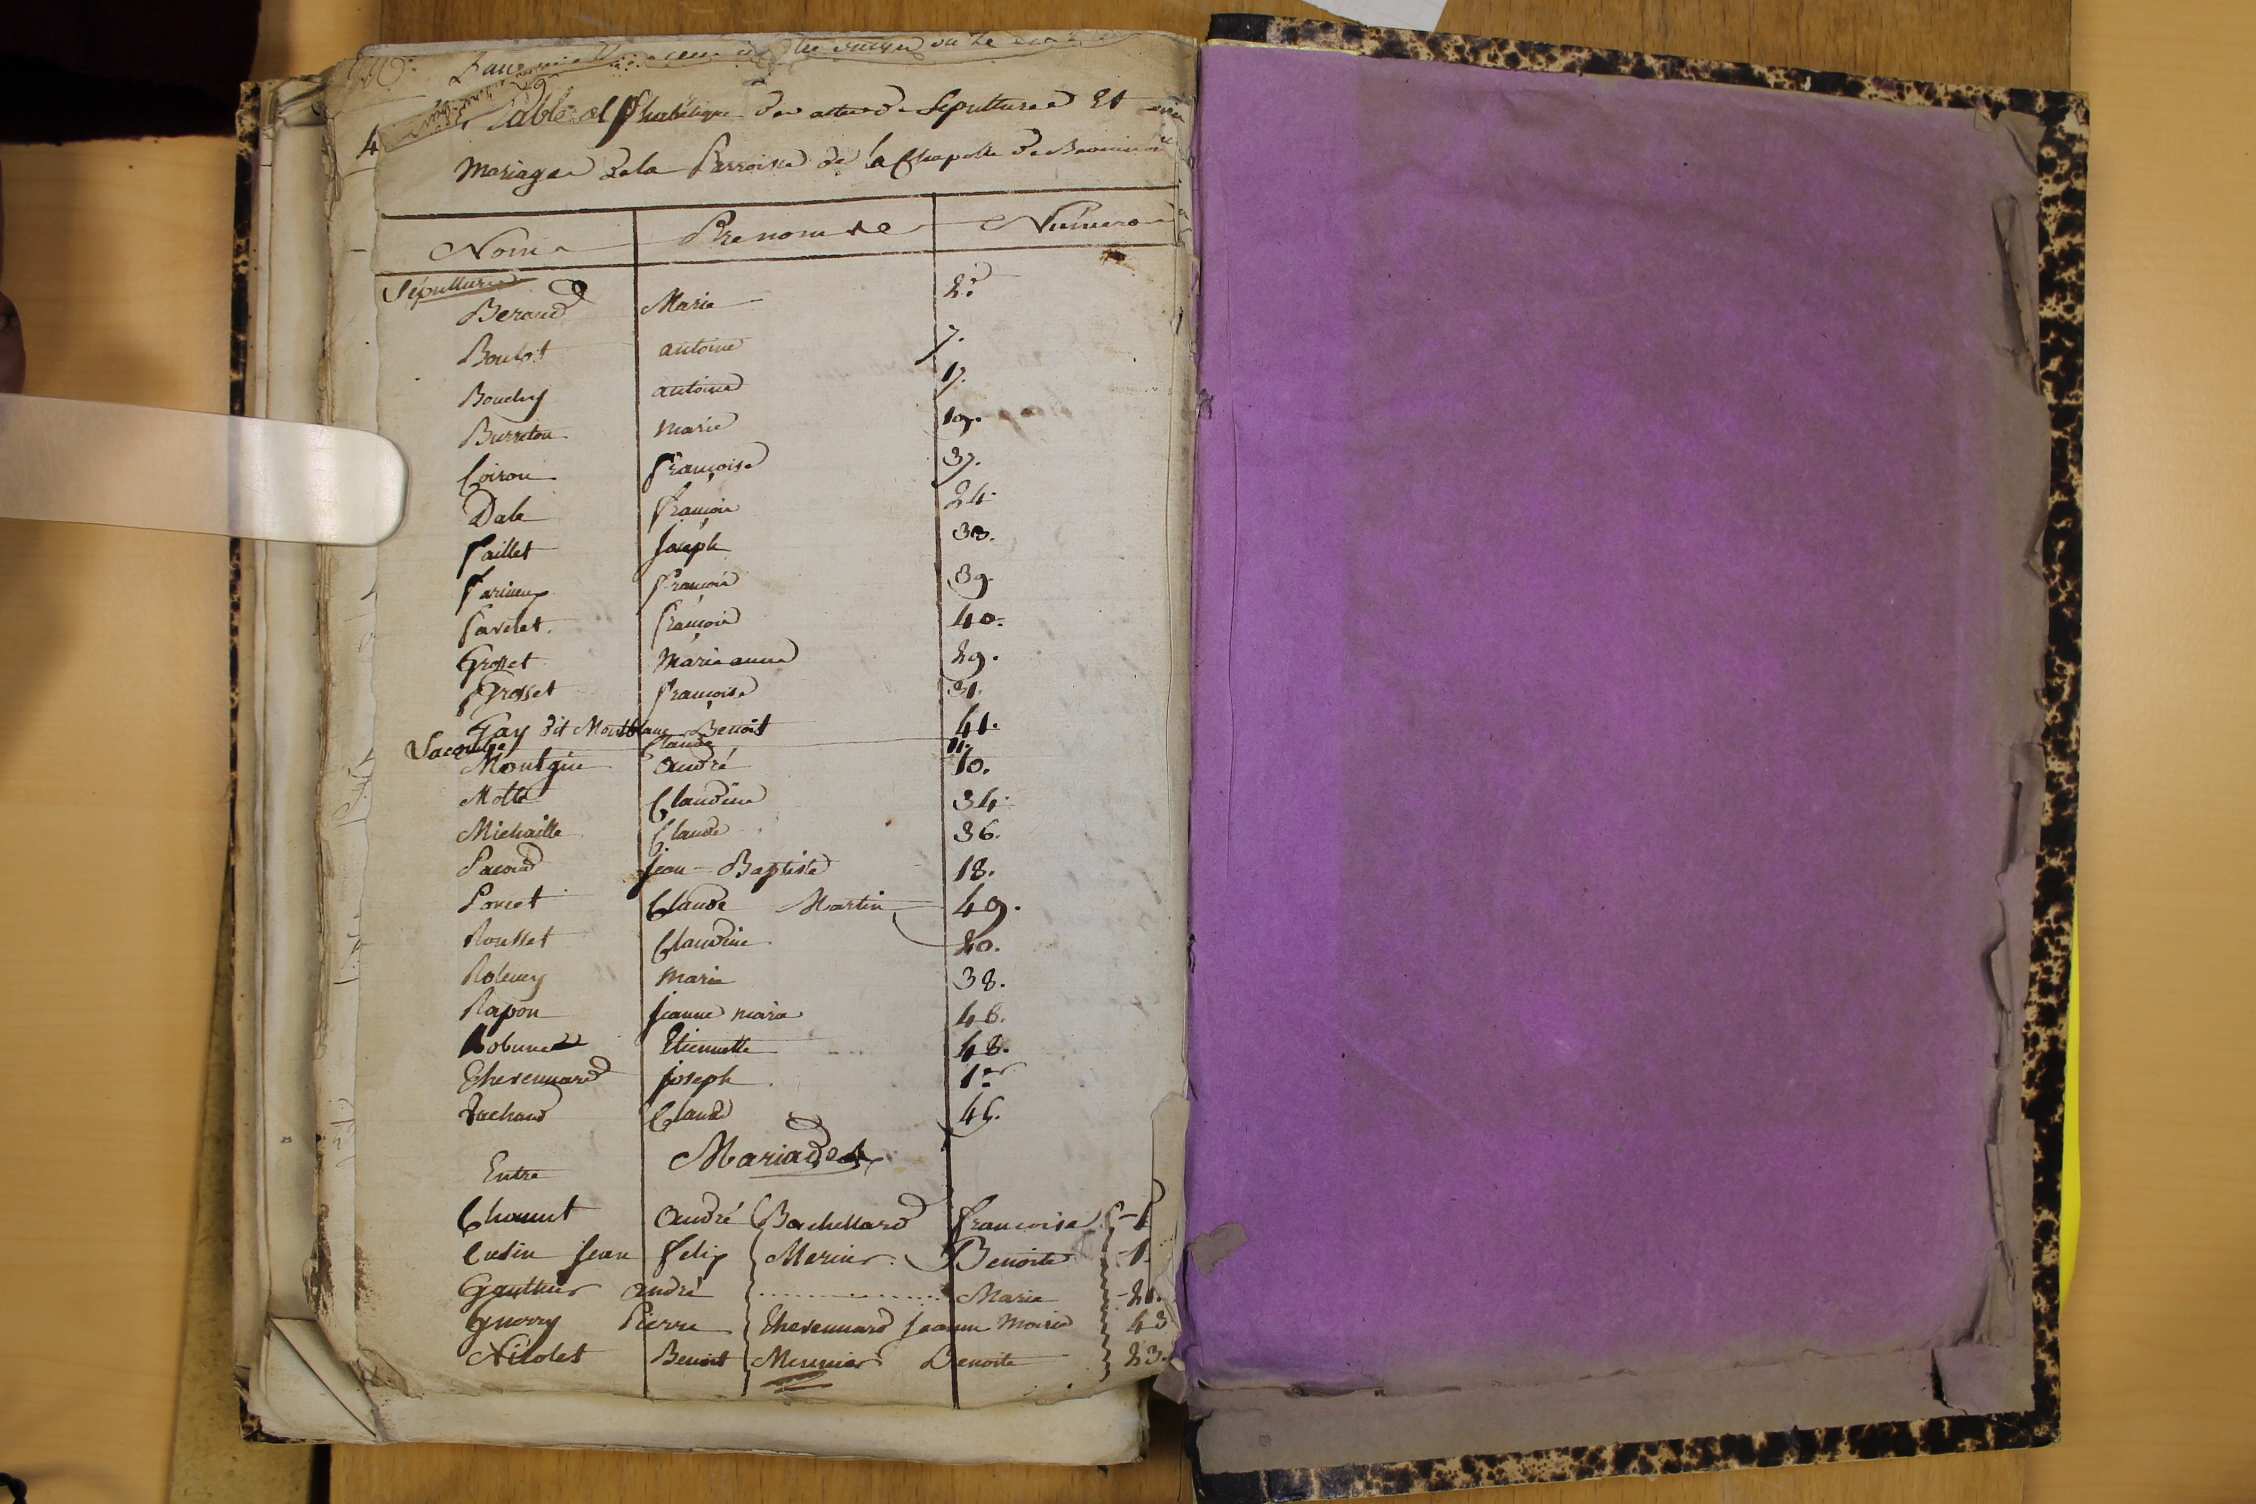 Table alphabetique des actes de Sepultures Et
Mariages de la Parroisse de la Chapelle de
Noms Prenoms Numero
Sépultures
Beraud Marie 2.
Boulot antoine 7.
Bouchy antoine 17.
Burreton marie 19.
Coiron françoise 37.
Dale françois 24.
faillet Joseph 33.
farieux françois 39.
favelet françois 40.
Grosset Marie anne 29.
Grosset françoise 31.
Gay dit Montblanc Benoit 41.
Lacombe Claude 11.
Montgin andré 10.
Motte Claudine 34.
Michaille Claude 36.
Pacoud Jean-Baptiste 18.
Poncet Claude Martin 49.
Rousset Claudine 20.
marie 38.
Rapon Jeanne marie 46.
Etiennette 48.
Thevennard Joseph 1er
Vachaud Claude 45.
Mariages
Entre
Chanut andré Bachellard françoise
Cusin Jean felix Mercier Benoite
Gauthier andré .............. Marie
Guerry Pierre Thevennard Jeanne Marie 43
Nicolet Benoit Meunier Benoite 23.